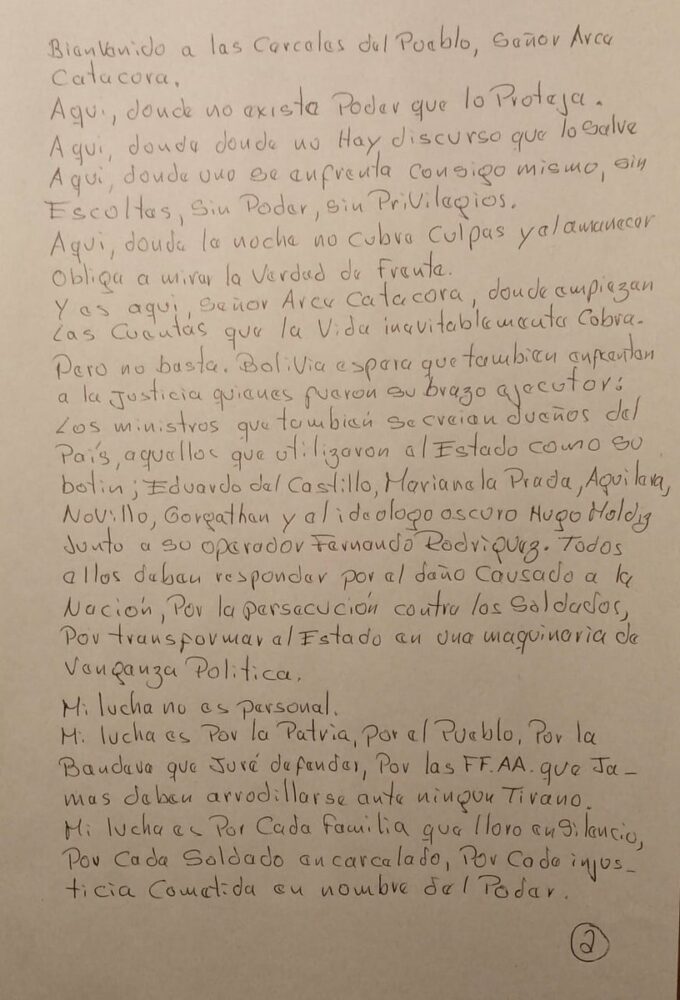 Bienvenido a las Carceles del Pueblo, Señor Arce
Catacora.
Aqui, donde no existe Poder que lo Proteja.
Aqui, donde donde no Hay discurso que lo Salve
Aqui, donde uno se enfrenta consigo mismo, sin
Escoltas, Sin Poder, sin Privilegios.
Aqui, donde la noche no cubre Culpas y el amanecer
Obliga a mirar la Verdad de Frente.
Y es aqui, Señor Arce Catacora, donde empiezan
Las Cuentas que la Vida inevitablemente Cobra.
Pero no basta. Bolivia espera que tambien enfrenten
a la Justicia quienes fueron su brazo ejecutor:
Los ministros que también se creian dueños del
País, aquellos que utilizaron al Estado como su
botin; Eduardo del Castillo, Marianela Prada, Aguilera,
Novillo, Gorgathan y al ideologo oscuro Hugo Moldiz
Junto a su operador Fernando Rodriguez. Todos
ellos deben responder por el daño Causado a la
Nación, Por la persecución contra los Soldados,
Por transformar al Estado en una maquinaria de
Venganza Politica.
Mi lucha no es personal.
Mi lucha es Por la Patria, por el Pueblo, Por la
Bandera que Juré defender, Por las FF.AA. que Ja-
mas deben arrodillarse ante ningun Tirano.
Mi lucha es Por Cada Familia que lloro en Silencio,
Por Cada Soldado encarcelado, Por Cada injus-
ticia Cometida en nombre del Poder.
2